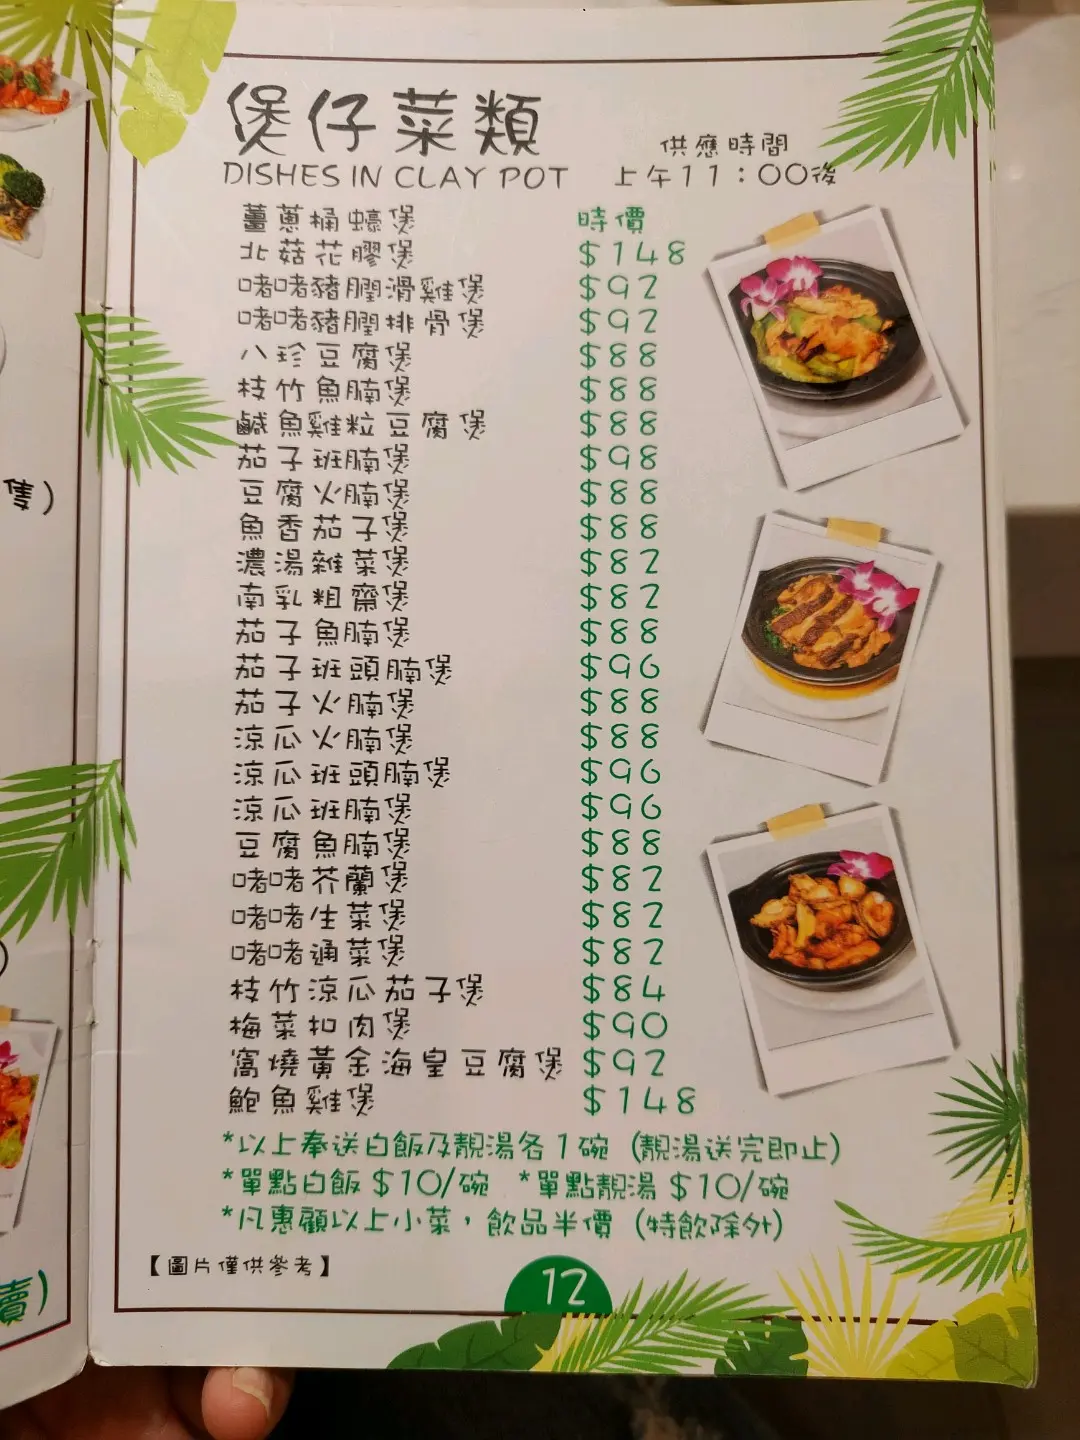 隻)
賣)
煲仔菜類
DISHES IN CLAY POT
供應時間
上午11:00後
薑蔥桶蠔煲 時價
北菇花膠煲 $148
啫啫豬膶滑雞煲 $92
啫啫豬膶排骨煲 $92
八珍豆腐煲 $88
枝竹魚腩煲 $88
鹹魚雞粒豆腐煲 $88
茄子班腩煲 $98
豆腐火腩煲 $88
魚香茄子煲 $88
濃湯雜菜煲 $82
南乳粗齋煲 $82
茄子魚腩煲 $88
茄子班頭腩煲 $96
茄子火腩煲 $88
涼瓜火腩煲 $88
涼瓜班頭腩煲 $96
涼瓜班腩煲 $96
豆腐魚腩煲 $88
啫啫芥蘭煲 $82
啫啫生菜煲 $82
啫啫通菜煲 $82
枝竹涼瓜茄子煲 $84
梅菜扣肉煲 $90
窩燒黃金海皇豆腐煲 $92
鮑魚雞煲 $148
*以上奉送白飯及靚湯各1碗 (靚湯送完即止)
*單點白飯 $10/碗 *單點靚湯 $10/碗
*凡惠顧以上小菜，飲品半價 (特飲除外)
【圖片僅供參考】
12